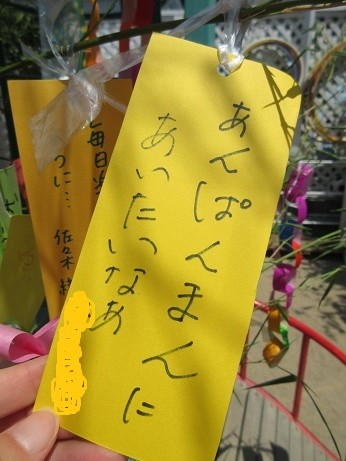 あんぱんまんに
あいたいなあ
毎日楽
つに…
佐々木